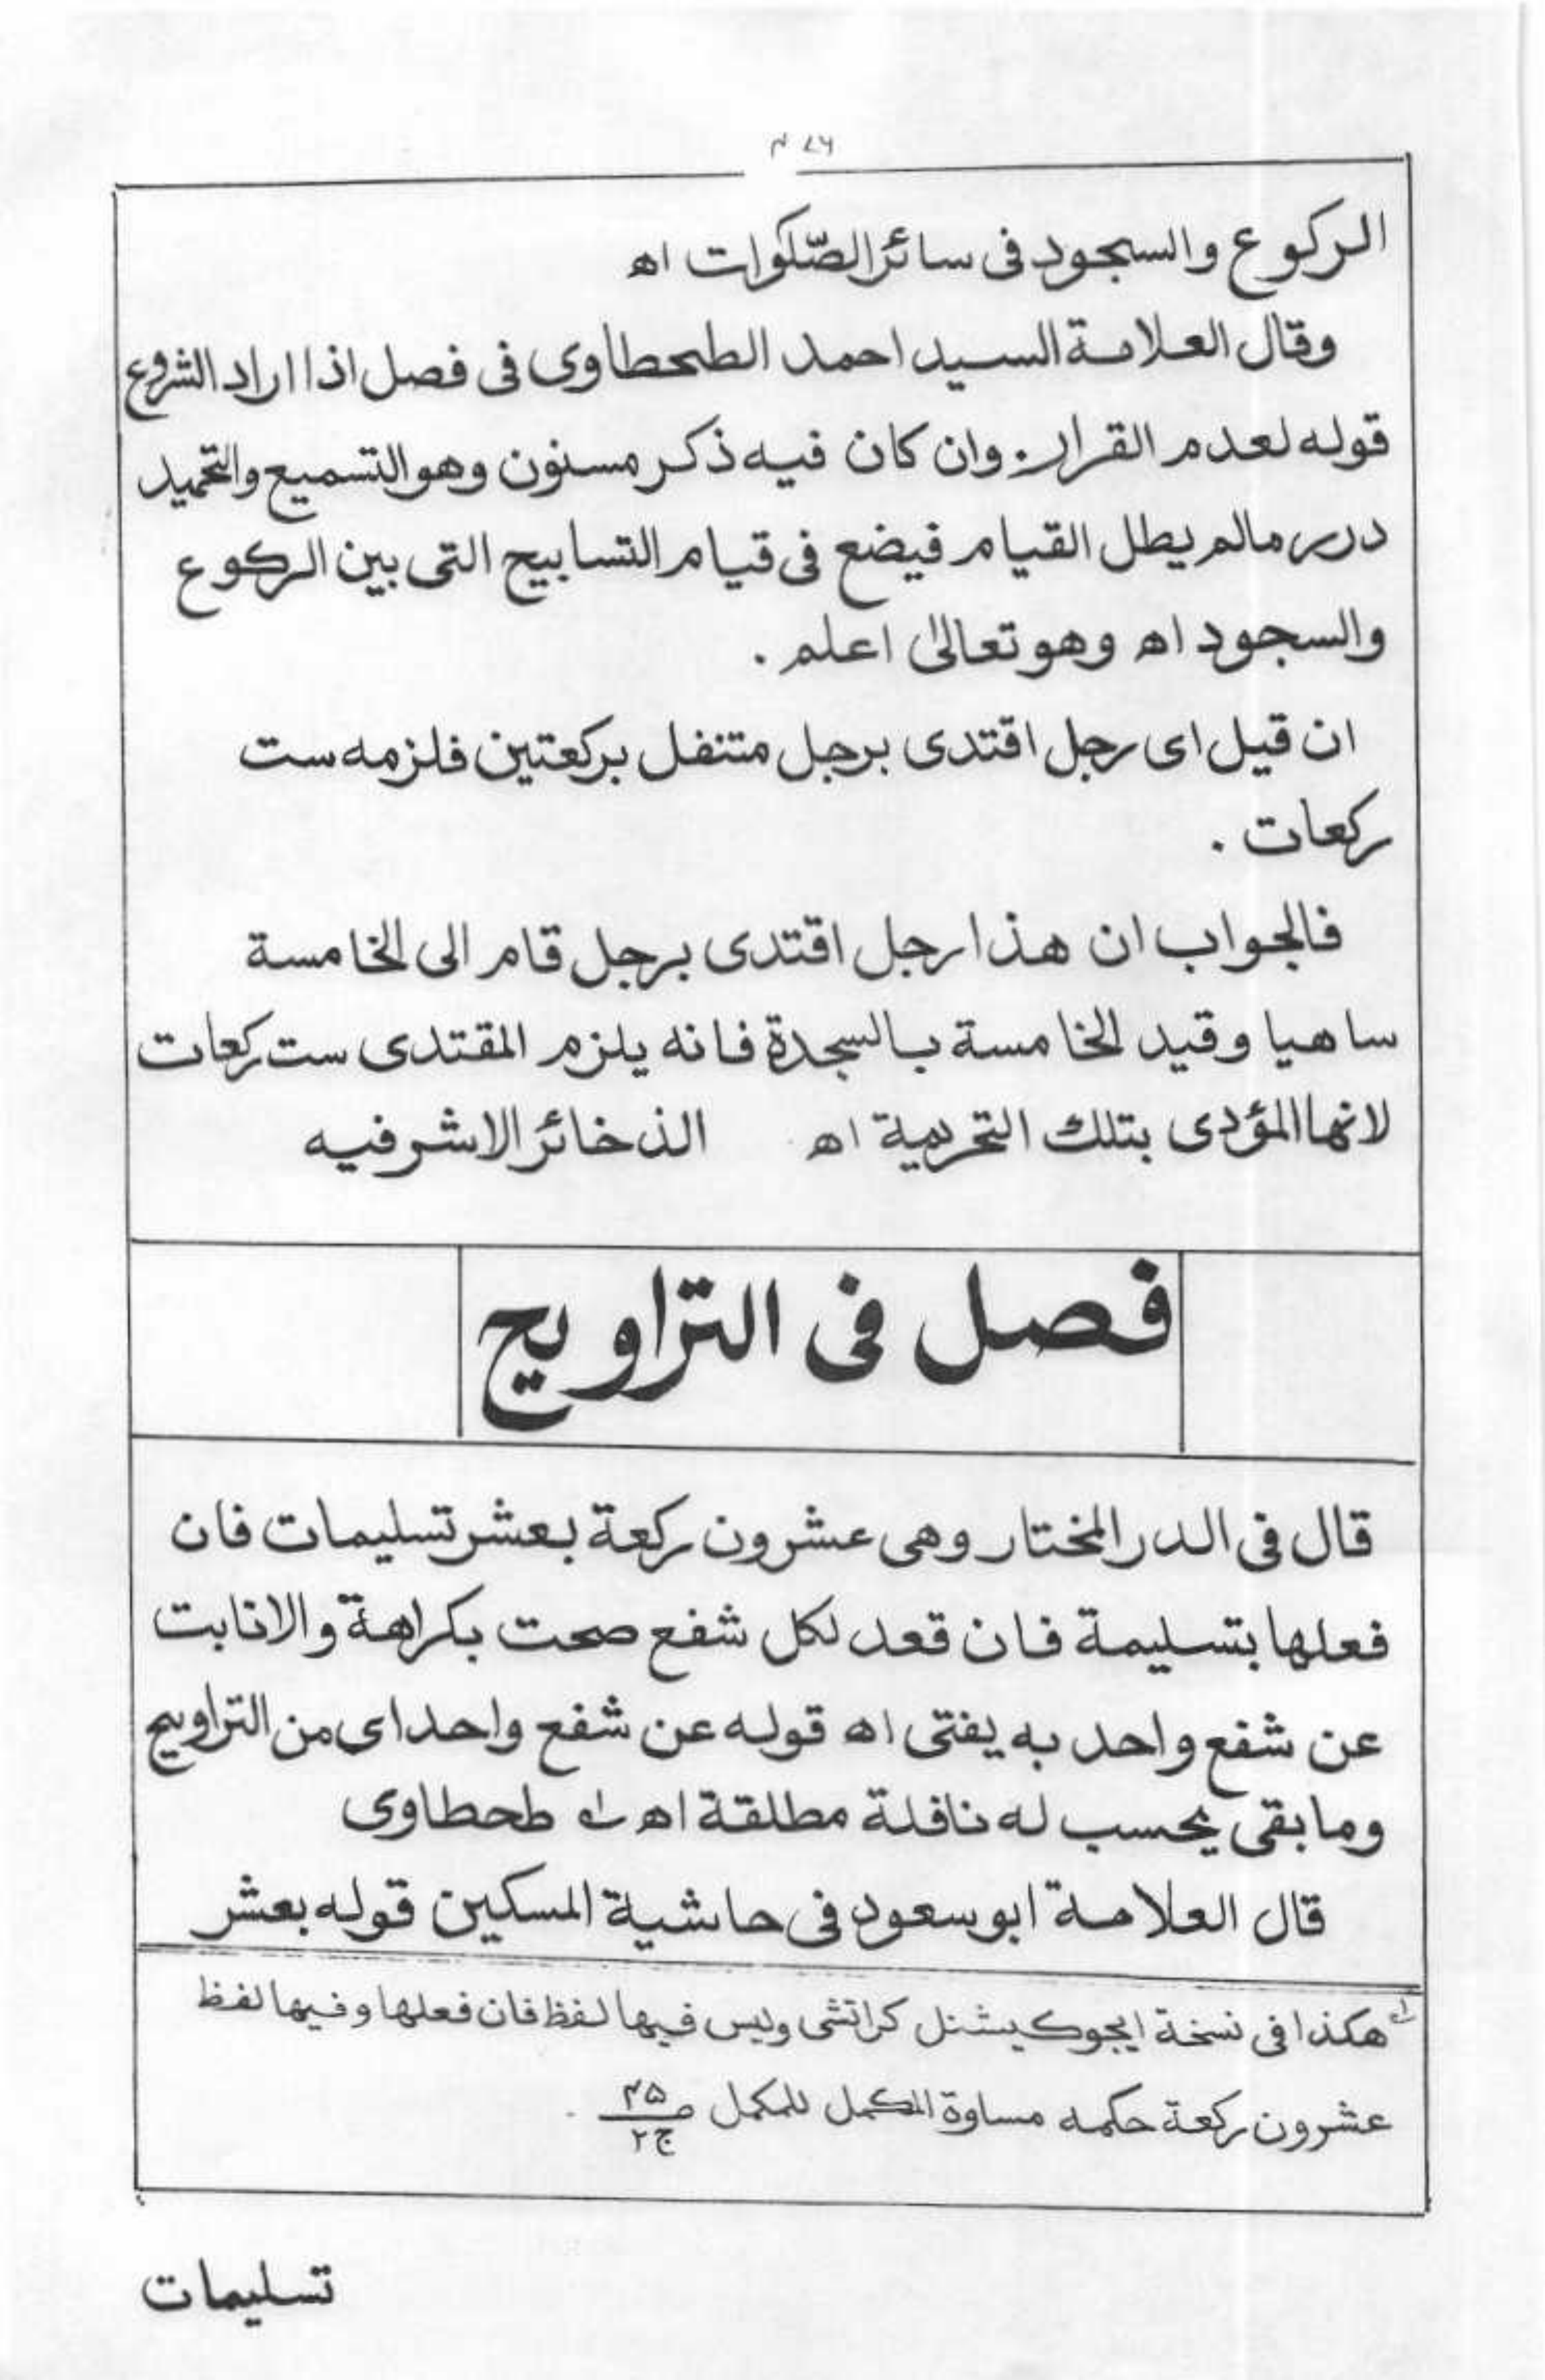 الركوع والسجود فى سائر الصّلوات اه
وقال العلامة السيد احمد الطحطاوى فى فصل اذا اراد الشروع
قوله لعدم القرار. وان كان فيه ذكر مسنون وهو التسميع والتحميد
درر مالم يطل القيام فيضع فى قيام التسابيح التى بين الركوع
والسجود اه وهو تعالىٰ اعلم .
ان قيل اى رجل اقتدى برجل متنفل بركعتين فلزمه ست
ركعات .
فالجواب ان هذا رجل اقتدى برجل قام الى الخامسة
ساهيا وقيد الخامسة بالسجدة فانه يلزم المقتدى ست ركعات
لانها المؤدى بتلك التحريمة اه الذخائر الاشرفيه
فصل فى التراويح
قال فى الدر المختار وهى عشرون ركعة بعشر تسليمات فان
فعلها بتسليمة فان قعد لكل شفع صحت بكراهة والا نابت
عن شفع واحد به يفتى اه قوله عن شفع واحد اى من التراويح
وما بقى يحسب له نافلة مطلقة اه طحطاوى
قال العلامة ابو سعود فى حاشية المسكين قوله بعشر
هكذا فى نسخة ايجوكيشنل كراتشى وليس فيها لفظ فان فعلها وفيها لفظ
عشرون ركعة حكمه مساوة المكمل للمكمل ص ۴۵ ج ۲
تسليمات